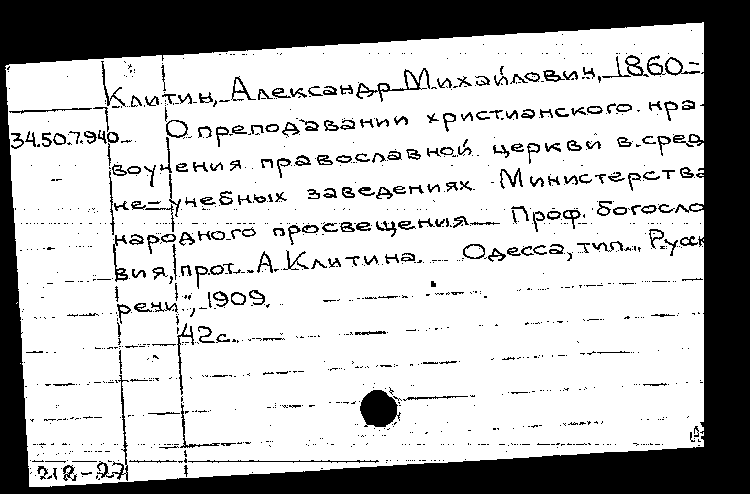 Клитин, Александр Михайлович, 1860-
34.50.7.940 О преподавании христианского нра-
воучения православной церкви в сред
не-учебных заведениях Министерства
народного просвещения Проф. богосло
вия, прот. А. Клитина. Одесса, тип. „Русск
речи", 1909.
42с.
212-27